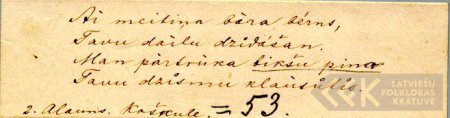 Ai meitiņa bāra bērns,
Tavu dailu dziďášan.
Man pārtrūka bikšu pina
Tavu dzismu klausůtis.
2. Alauns. Kaškule. = 53.
LATVIEŠU
FOLKLORAS
KRĀTUVE